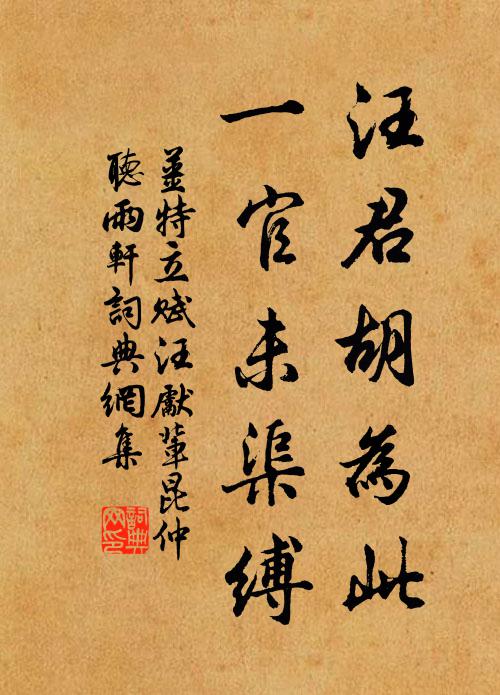 汪君胡為此
一官未渠縛
姜特立賦汪獻輩昆仲
聽雨軒詞典網集
詞典